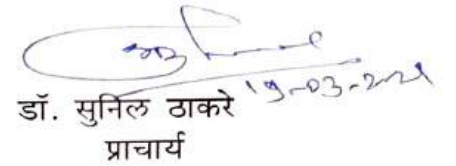 19-03-2021
डॉ. सुनिल ठाकरे
प्राचार्य